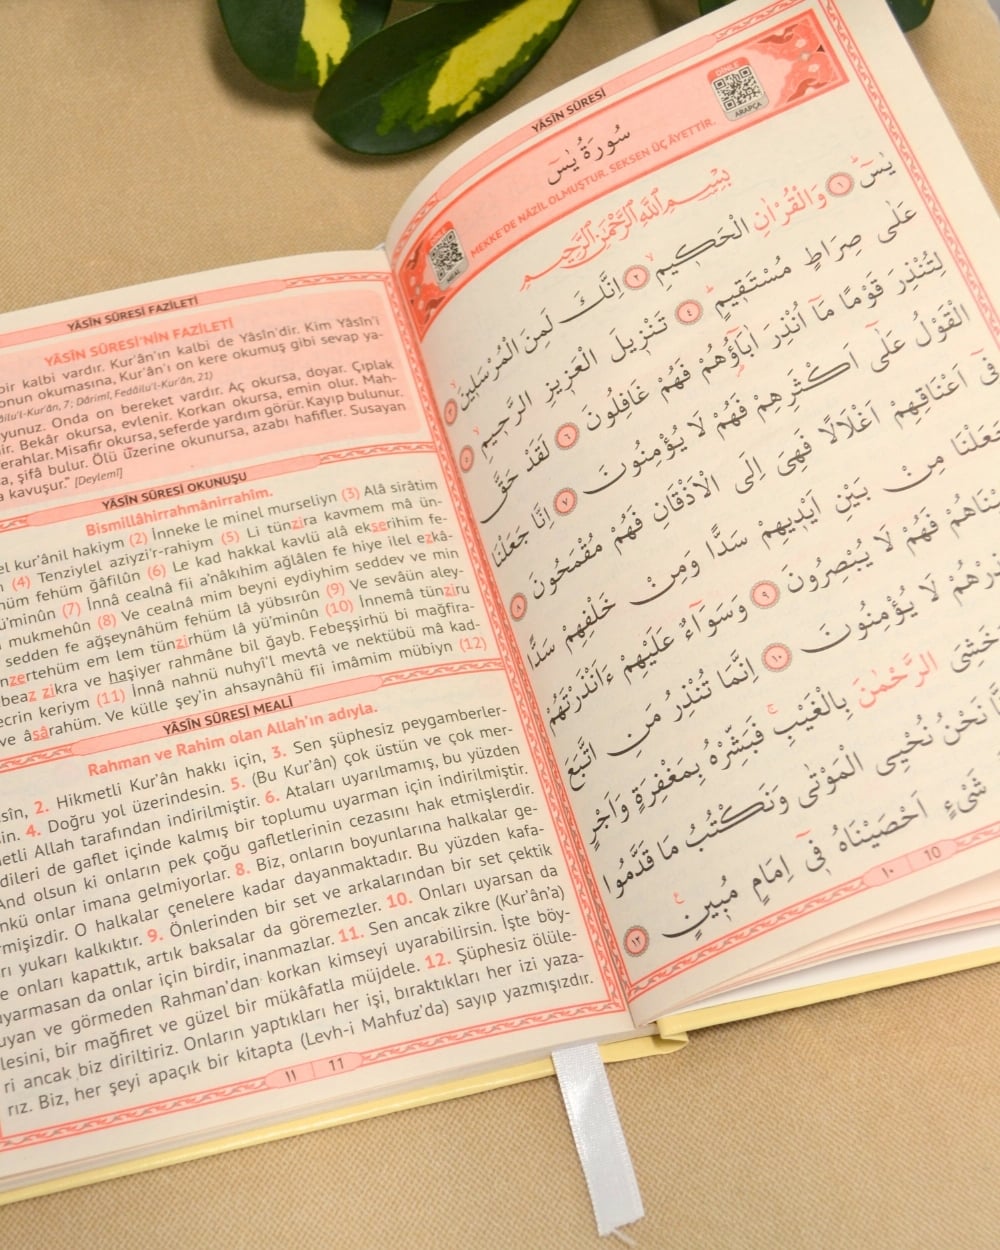 YÂSÎN SÛRESİ
DİNLE
ARAPÇA
سُورَةُ يٰسٓ
MEKKE'DE NÂZİL OLMUŞTUR. SEKSEN ÜÇ ÂYETTİR.
DİNLE
MEAL
بِسْمِ اللّٰهِ الرَّحْمٰنِ الرَّحٖيمِ
يٰسٓ ١ وَالْقُرْاٰنِ الْحَكٖيمِ ٢ اِنَّكَ لَمِنَ الْمُرْسَلٖينَ ٣
عَلٰى صِرَاطٍ مُسْتَقٖيمٍ ٤ تَنْزٖيلَ الْعَزٖيزِ الرَّحٖيمِ ٥
لِتُنْذِرَ قَوْمًا مَٓا اُنْذِرَ اٰبَٓاؤُهُمْ فَهُمْ غَافِلُونَ ٦ لَقَدْ حَقَّ
الْقَوْلُ عَلٰٓى اَكْثَرِهِمْ فَهُمْ لَا يُؤْمِنُونَ ٧ اِنَّا جَعَلْنَا
فٖٓى اَعْنَاقِهِمْ اَغْلَالًا فَهِىَ اِلَى الْاَذْقَانِ فَهُمْ مُقْمَحُونَ ٨
جَعَلْنَا مِنْ بَيْنِ اَيْدٖيهِمْ سَدًّا وَمِنْ خَلْفِهِمْ سَدًّا
فَهُمْ لَا يُبْصِرُونَ ٩ وَسَوَٓاءٌ عَلَيْهِمْ ءَاَنْذَرْتَهُمْ
لَا يُؤْمِنُونَ ١٠ اِنَّمَا تُنْذِرُ مَنِ اتَّبَعَ
خَشِىَ الرَّحْمٰنَ بِالْغَيْبِ فَبَشِّرْهُ بِمَغْفِرَةٍ وَاَجْرٍ
نَحْنُ نُحْيِى الْمَوْتٰى وَنَكْتُبُ مَا قَدَّمُوا
شَىْءٍ اَحْصَيْنَاهُ فٖٓى اِمَامٍ مُبٖينٍ ١٢
١٠ 10
YÂSÎN SÛRESİ FAZİLETİ
YÂSÎN SÛRESİ'NİN FAZİLETİ
bir kalbi vardır. Kur'ân'ın kalbi de Yâsîn'dir. Kim Yâsîn'i
onun okumasına, Kur'ân'ı on kere okumuş gibi sevap ya-
Kur'ân, 7; Dârimî, Fedâilu'l-Kur'ân, 21)
yunuz. Onda on bereket vardır. Aç okursa, doyar. Çıplak
ir. Bekâr okursa, evlenir. Korkan okursa, emin olur. Mah-
erahlar. Misafir okursa, seferde yardım görür. Kayıp bulunur.
a, şifâ bulur. Ölü üzerine okunursa, azabı hafifler. Susayan
a kavuşur." [Deylemî]
YÂSÎN SÛRESİ OKUNUŞU
Bismillâhirrahmânirrahîm.
el kur'ânil hakiym (2) İnneke le minel murseliyn (3) Alâ sirâtim
(4) Tenziylel aziyzi'r-rahiym (5) Li tünzira kavmem mâ ün-
hüm fehüm ğâfilûn (6) Le kad hakkal kavlü alâ ekserihim fe-
ü'minûn (7) İnnâ cealnâ fii a'nâkıhim ağlâlen fe hiye ilel ezkâ-
mukmehûn (8) Ve cealnâ mim beyni eydiyhim seddev ve min
sedden fe ağşeynâhüm fehüm lâ yübsırûn (9) Ve sevâün aley-
nzertehüm em lem tünzirhüm lâ yü'minûn (10) İnnemâ tünziru
beaz zikra ve haşiyer rahmâne bil ğayb. Febeşşirhü bi mağfira-
ecrin keriym (11) İnnâ nahnü nuhyi'l mevtâ ve nektübü mâ kad-
ve âsârahüm. Ve külle şey'in ahsaynâhü fii imâmim mübiyn (12)
YÂSÎN SÛRESİ MEALİ
Rahman ve Rahim olan Allah'ın adıyla.
sîn, 2. Hikmetli Kur'ân hakkı için, 3. Sen şüphesiz peygamberler-
in. 4. Doğru yol üzerindesin. 5. (Bu Kur'ân) çok üstün ve çok mer-
etli Allah tarafından indirilmiştir. 6. Ataları uyarılmamış, bu yüzden
dileri de gaflet içinde kalmış bir toplumu uyarman için indirilmiştir.
And olsun ki onların pek çoğu gafletlerinin cezasını hak etmişlerdir.
nkü onlar imana gelmiyorlar. 8. Biz, onların boyunlarına halkalar ge-
rmişizdir. O halkalar çenelere kadar dayanmaktadır. Bu yüzden kafa-
rı yukarı kalkıktır. 9. Önlerinden bir set ve arkalarından bir set çektik
e onları kapattık, artık baksalar da göremezler. 10. Onları uyarsan da
uyarmasan da onlar için birdir, inanmazlar. 11. Sen ancak zikre (Kur'ân'a)
uyan ve görmeden Rahman'dan korkan kimseyi uyarabilirsin. İşte böy-
lesini, bir mağfiret ve güzel bir mükâfatla müjdele. 12. Şüphesiz ölüle-
ri ancak biz diriltiriz. Onların yaptıkları her işi, bıraktıkları her izi yaza-
rız. Biz, her şeyi apaçık bir kitapta (Levh-i Mahfuz'da) sayıp yazmışızdır.
١١ 11